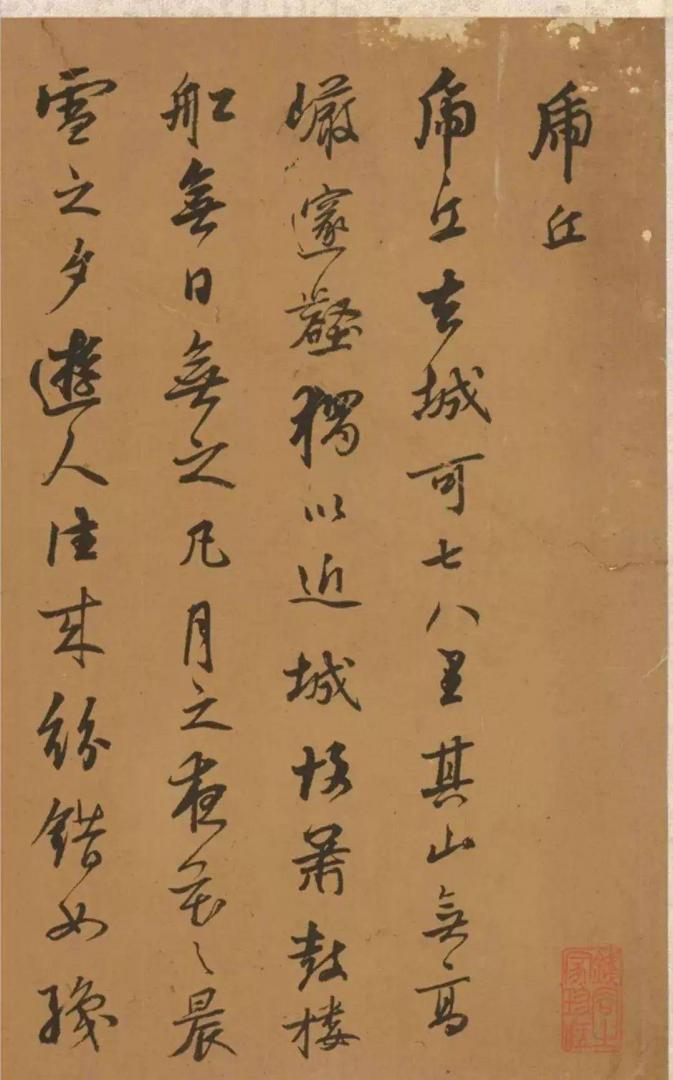 虎丘
虎丘去城可七八里其山無高
巗邃壑獨以近城故簫鼓樓
舡無日無之凡月之夜花之晨
雪之夕遊人往來紛錯如